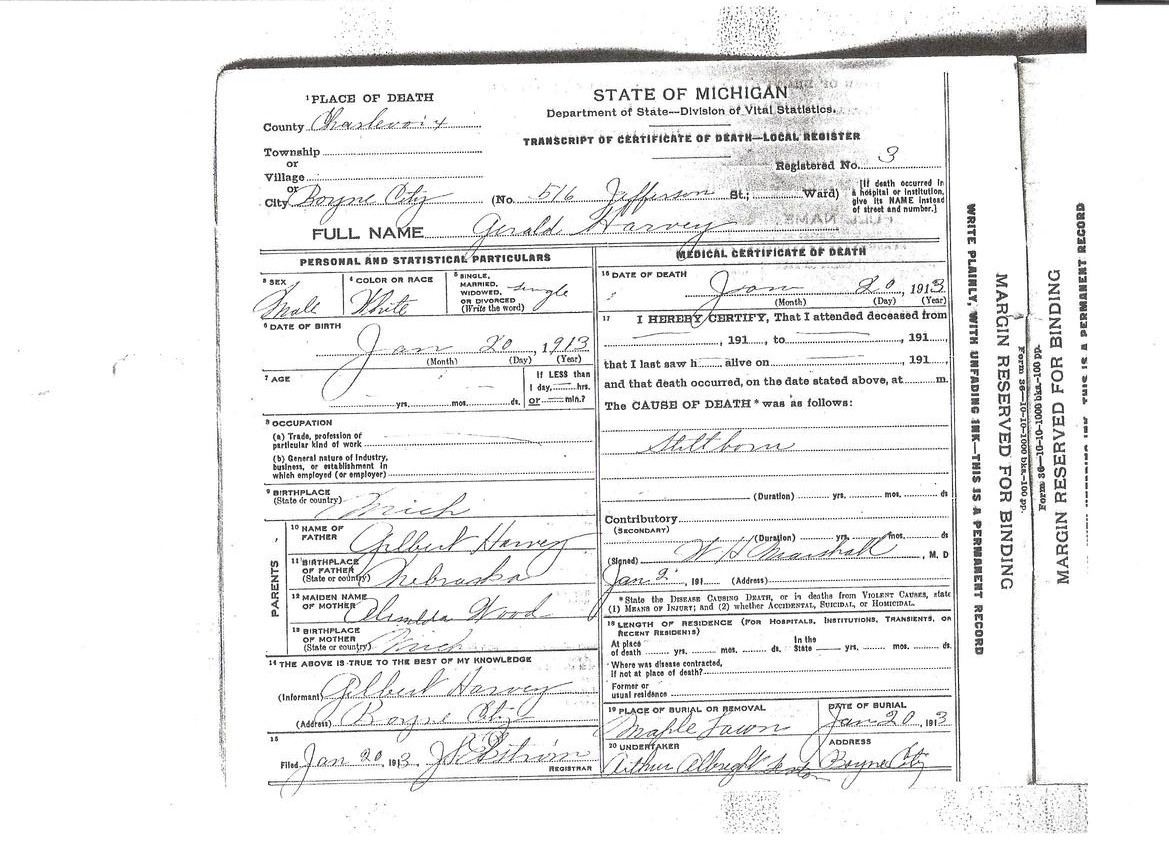 STATE OF MICHIGAN
Department of State—Division of Vital Statistics.
TRANSCRIPT OF CERTIFICATE OF DEATH—LOCAL REGISTER
1 PLACE OF DEATH
County Charlevoix
Township
or
Village
or
City Boyne City (No. 516 Jefferson St.; Ward)
Registered No. 3
[If death occurred in
a hospital or institution,
give its NAME instead
of street and number.]
FULL NAME Gerald Harvey
PERSONAL AND STATISTICAL PARTICULARS
3 SEX
Male
4 COLOR OR RACE
White
5 SINGLE,
MARRIED,
WIDOWED,
OR DIVORCED
(Write the word)
Single
6 DATE OF BIRTH
Jan 20, 1913
(Month) (Day) (Year)
7 AGE
yrs. mos. ds.
If LESS than
1 day, hrs.
or min.?
8 OCCUPATION
(a) Trade, profession of
particular kind of work
(b) General nature of industry,
business, or establishment in
which employed (or employer)
9 BIRTHPLACE
(State or country)
Mich
PARENTS
10 NAME OF
FATHER
Gilbert Harvey
11 BIRTHPLACE
OF FATHER
(State or country)
Nebraska
12 MAIDEN NAME
OF MOTHER
Wood
13 BIRTHPLACE
OF MOTHER
(State or country)
Mich
14 THE ABOVE IS TRUE TO THE BEST OF MY KNOWLEDGE
(Informant) Gilbert Harvey
(Address) Boyne City
15
Filed Jan 20, 1913
REGISTRAR
MEDICAL CERTIFICATE OF DEATH
16 DATE OF DEATH
Jan 20, 1913
(Month) (Day) (Year)
17 I HEREBY CERTIFY, That I attended deceased from
, 191 , to , 191
that I last saw h alive on , 191
and that death occurred, on the date stated above, at m.
The CAUSE OF DEATH * was as follows:
Stillborn
(Duration) yrs. mos. ds
Contributory
(SECONDARY)
(Duration) yrs. mos. ds
(Signed) W H Marshall, M. D
Jan 2 , 191 (Address)
*State the DISEASE CAUSING DEATH, or in deaths from VIOLENT CAUSES, state
(1) MEANS OF INJURY; and (2) whether ACCIDENTAL, SUICIDAL, OR HOMICIDAL.
18 LENGTH OF RESIDENCE (FOR HOSPITALS, INSTITUTIONS, TRANSIENTS, OR
RECENT RESIDENTS)
At place
of death yrs. mos. ds.
In the
State yrs. mos. ds.
Where was disease contracted,
if not at place of death?
Former or
usual residence
19 PLACE OF BURIAL OR REMOVAL
Maple Lawn
DATE OF BURIAL
Jan 20, 1913
20 UNDERTAKER
Arthur Albright
ADDRESS
Boyne City
WRITE PLAINLY, WITH UNFADING INK—THIS IS A PERMANENT RECORD
MARGIN RESERVED FOR BINDING
Form 36—10-10-1000 bks.-100 pp.
Form 36—10-10-1000 bks.-100 pp.
MARGIN RESERVED FOR BINDING
THIS IS A PERMANENT RECORD